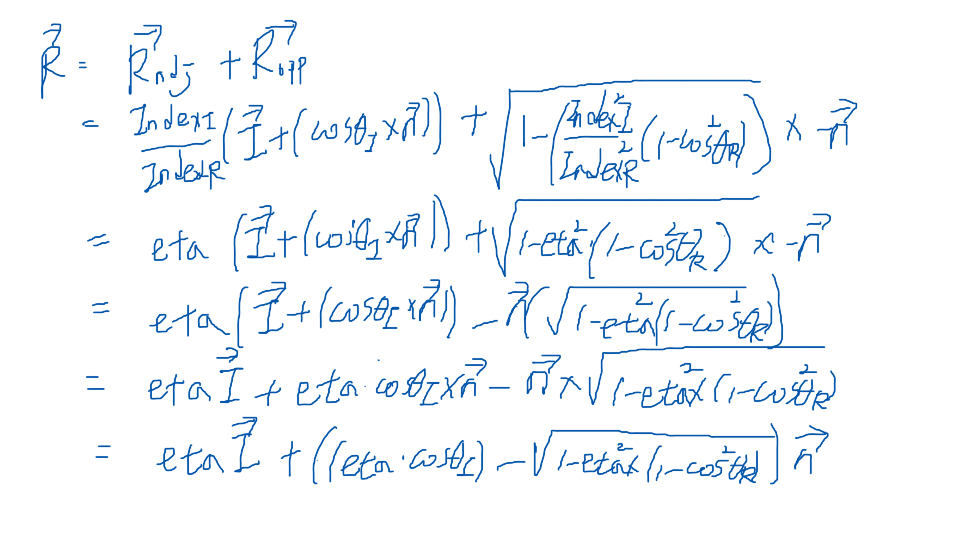 R⃗ = R⃗ndj + R⃗opp
= IndexI/IndexR (I⃗ + (cosθI × n⃗)) + √(1 - (IndexI²/IndexR² (1 - cos²θR))) × -n⃗
= eta (I⃗ + (cosθI × n⃗)) + √(1 - eta² (1 - cos²θR)) × -n⃗
= eta (I⃗ + (cosθI × n⃗)) - n⃗ (√(1 - eta² (1 - cos²θR)))
= eta I⃗ + eta · cosθI × n⃗ - n⃗ × √(1 - eta² × (1 - cos²θR))
= eta I⃗ + ((eta · cosθI) - √(1 - eta² × (1 - cos²θR))) n⃗